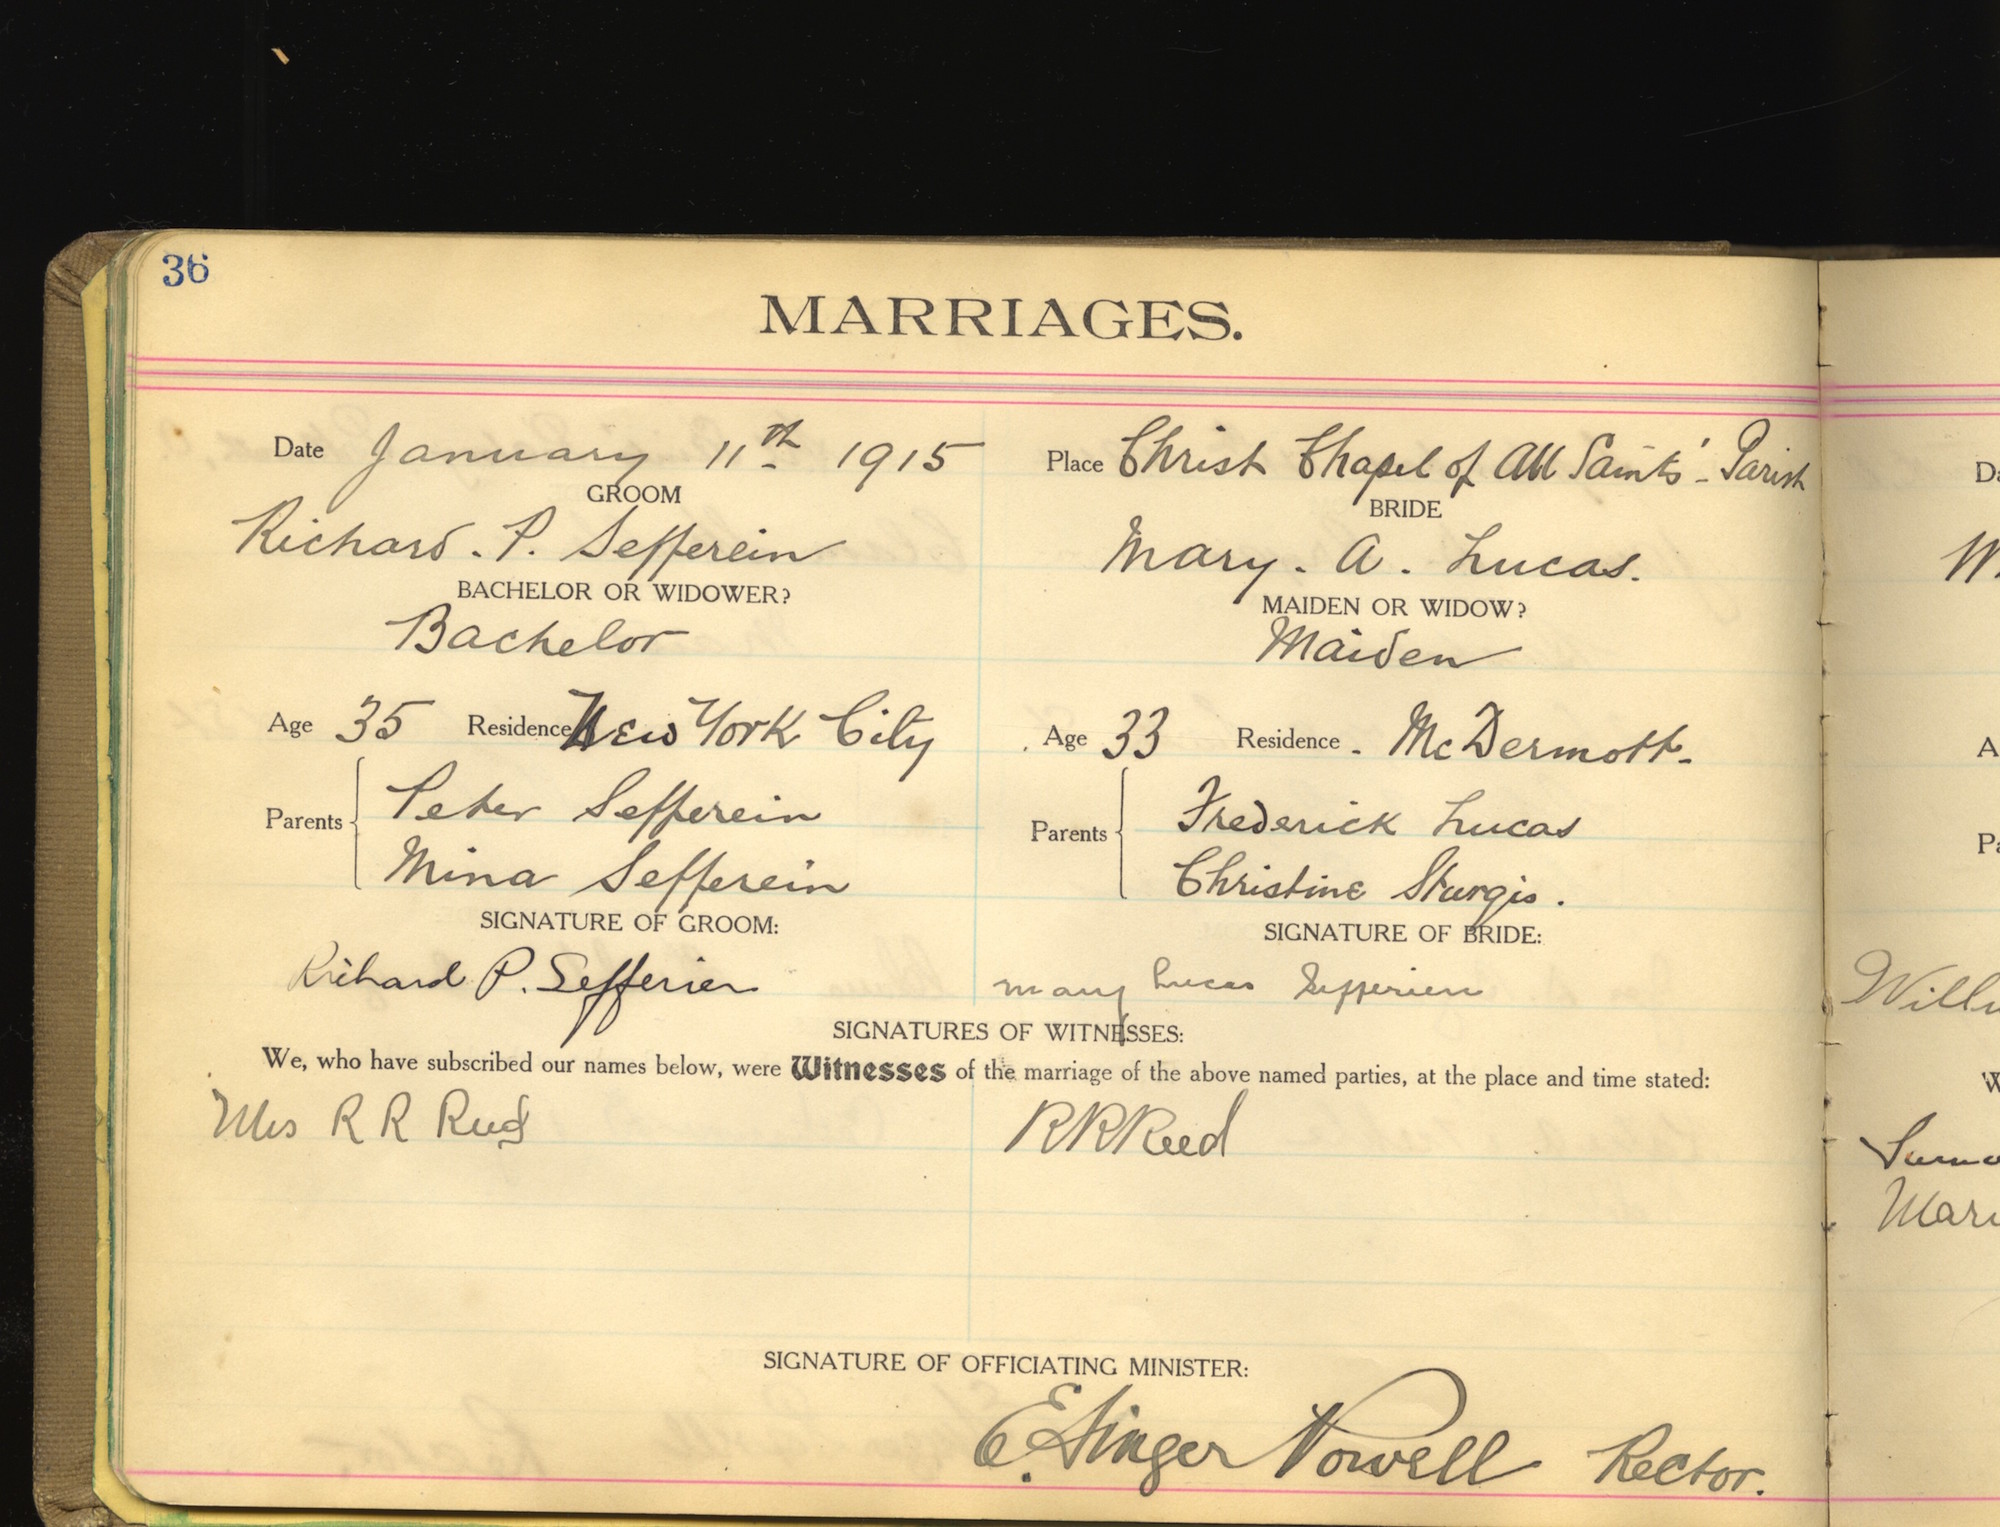 36
MARRIAGES.
Date January 11th 1915
GROOM
Richard. P. Sefferein
BACHELOR OR WIDOWER?
Bachelor
Age 35 Residence New York City
Parents Peter Sefferein
Mina Sefferein
SIGNATURE OF GROOM:
Richard P. Sefferien
Place Christ Chapel of All Saints' - Parish
BRIDE
Mary. A. Lucas.
MAIDEN OR WIDOW?
Maiden
Age 33 Residence. McDermott.
Parents Frederick Lucas
Christine Sturgis.
SIGNATURE OF BRIDE:
Mary Lucas Sefferien
SIGNATURES OF WITNESSES:
We, who have subscribed our names below, were Witnesses of the marriage of the above named parties, at the place and time stated:
Mrs R R Reed
R R Reed
SIGNATURE OF OFFICIATING MINISTER:
E. Singer Nowell Rector.